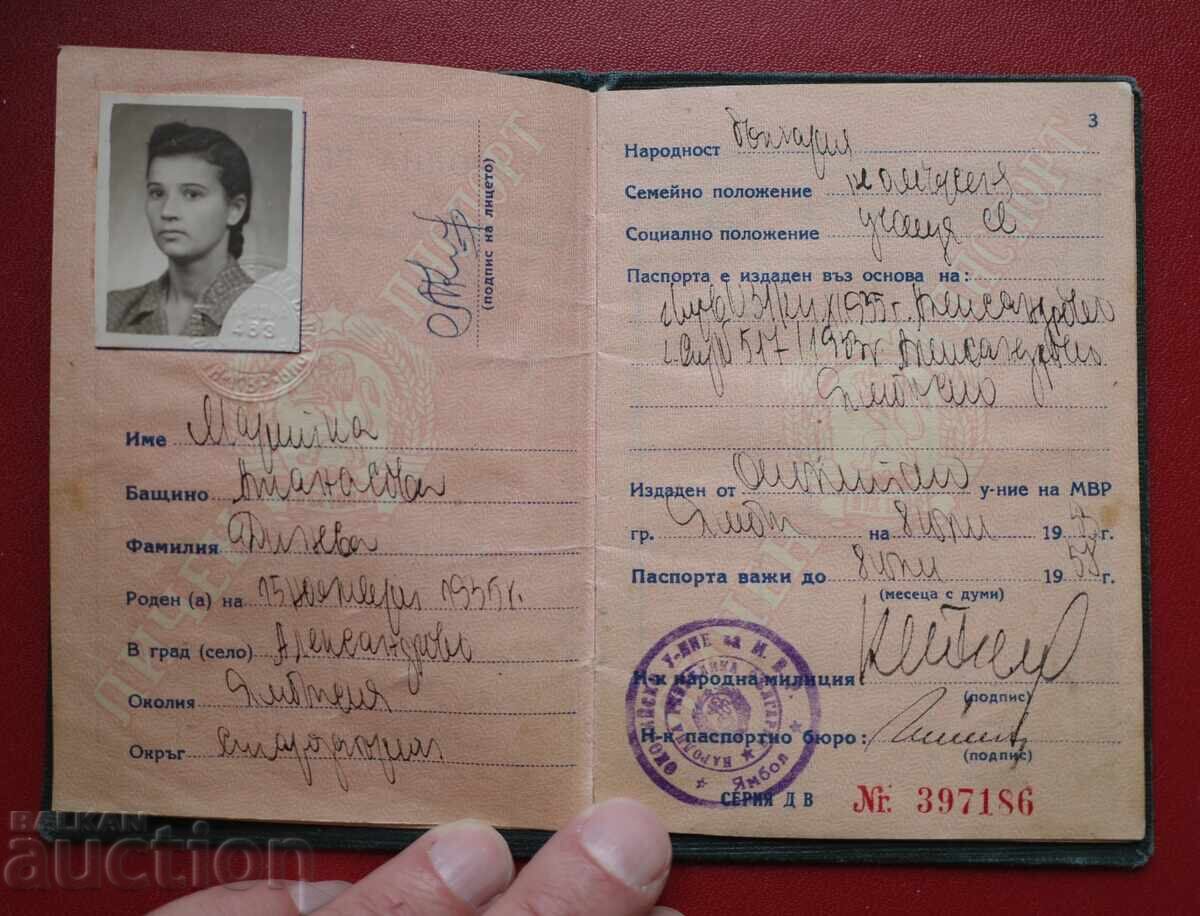 (подпис на лицето)
ЛИЧЕН ПАСПОРТ
433
Име Марийка
Бащино Атанасова
Фамилия
Роден (а) на 15 ноемврий 1935 г.
В град (село) Александрово
Околия Ямболска
Окръг Старозагорски
3
Народност българия
Семейно положение неомъжена
Социално положение учаща се
Паспорта е издаден въз основа на:
1935 г. Александрово
517 Александрово
Ямболско
Издаден от околийско у-ние на МВР
гр. Ямбол на 8 юни 19 г.
Паспорта важи до 8 юни 1958 г.
(месеца с думи)
Н-к народна милиция
(подпис)
Н-к паспортно бюро:
(подпис)
ОКОЛИЙСКО У-НИЕ на М.В.Р. Ямбол
НАРОДНА РЕПУБЛИКА БЪЛГАРИЯ
СЕРИЯ ДВ Nr. 397186
BALKAN
auction